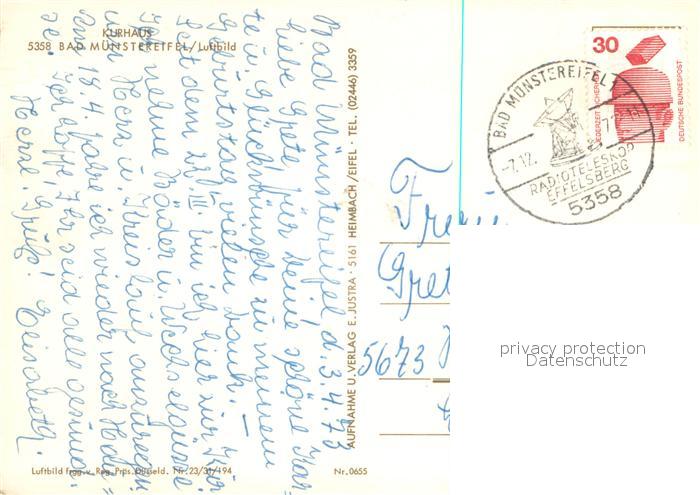 KURHAUS
5358 BAD MÜNSTEREIFEL/Luftbild
Bad Münstereifel d. 3.4.73
Liebe Grete, für Deine schöne Kar=
te u. Glückwünsche zu meinem
Geburtstag vielen Dank. –
Seit dem 27. III. bin ich hier zur Kur
Ich nehme Bäder u. Wechselgüsse
um Herz u. Kreislauf
Am 18.4. fahre ich wieder nach
Ich hoffe, Ihr seid alle gesund.
Herzl. Grüße! Elisabeth.
Luftbild freig. v. Reg. Präs. Düsseld. Nr. 23/31/194
Nr. 0655
AUFNAHME U. VERLAG E. JUSTRA · 5161 HEIMBACH/EIFEL · TEL. (02446) 3359
30
JEDERZEIT SICHERHEIT
DEUTSCHE BUNDESPOST
BAD MÜNSTEREIFEL 1
RADIOTELESKOP
EFFELSBERG
5358
Fr
Gret
5673
privacy protection
Datenschutz